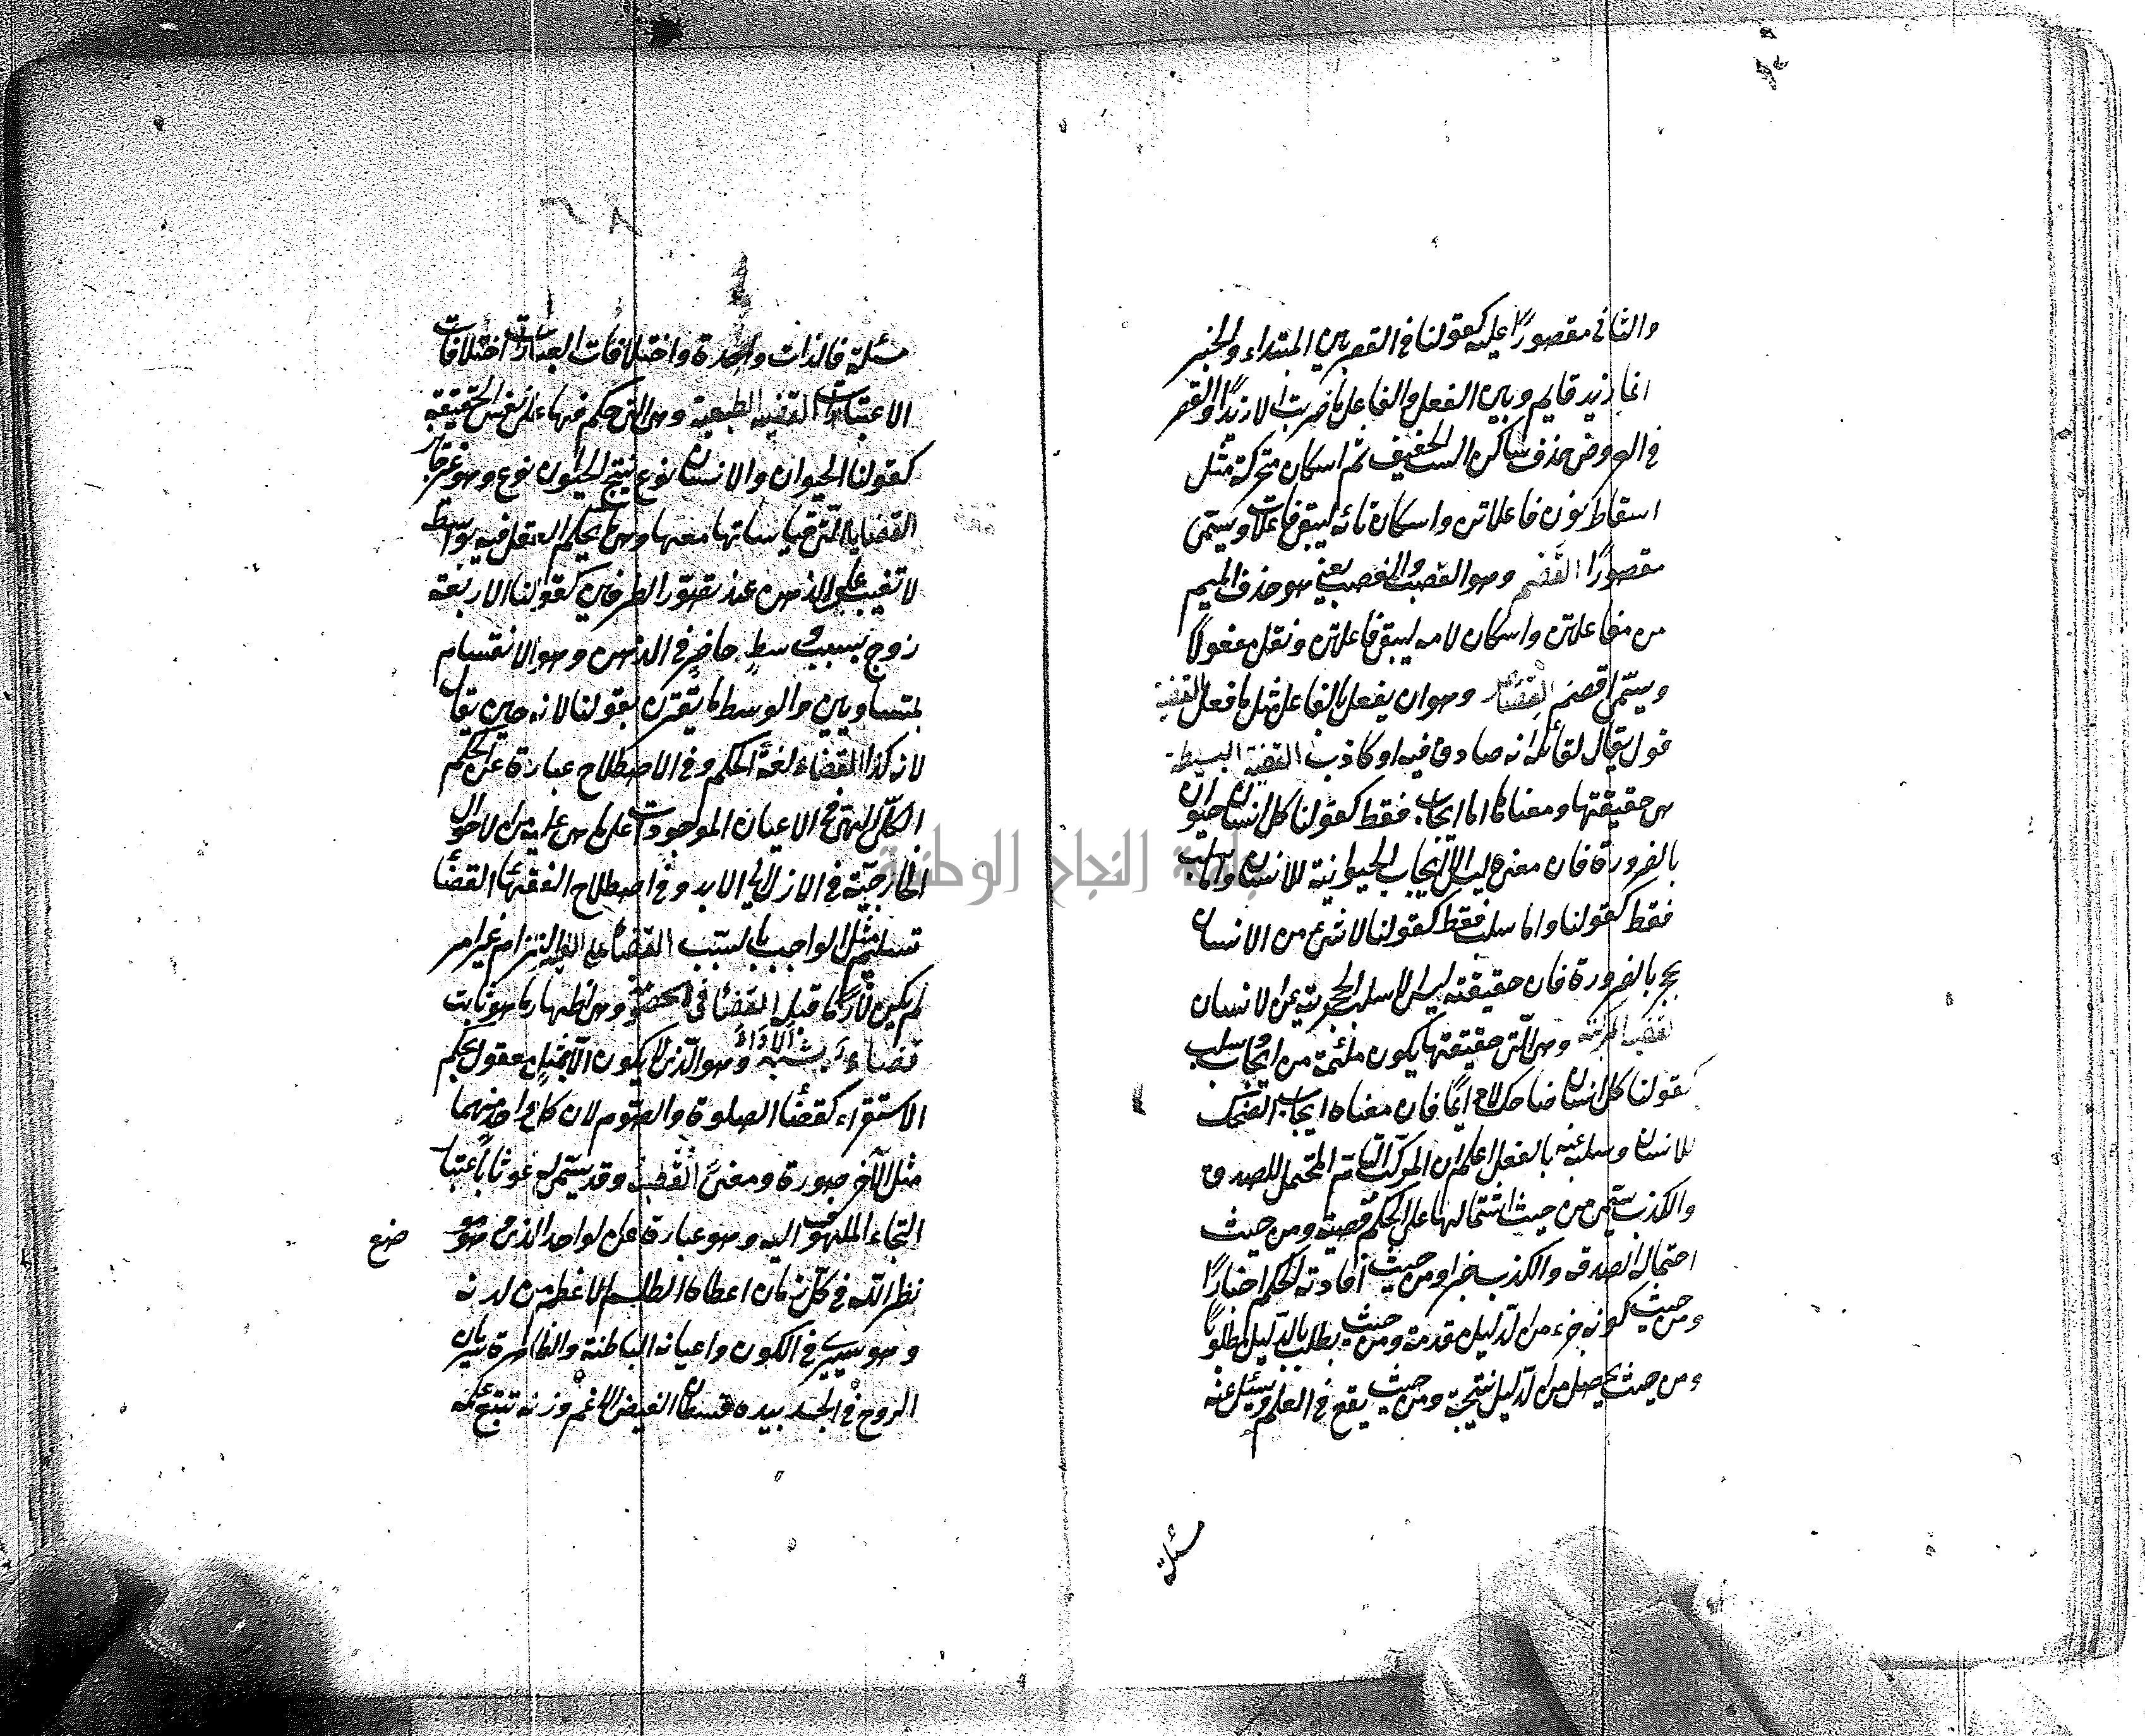 والثاني مقصورًا عليه كقولنا في القصر بين المبتداء والخبر
انما زيد قايم وبين الفعل والفاعل ما ضربت الا زيدًا والقصر
في العروض حذف ساكن السبب الخفيف ثم اسكان متحركه مثل
اسقاط نون فاعلاتن واسكان تائه ليبقى فاعلات ويسمى
مقصورًا القصم وهو العصب والعضب يعني هو حذف الميم
من مفاعلتن واسكان لامه ليبقى فاعلتن ونقل مفعولا
ويسمى اقصم القصاص وهو ان يفعل بالفاعل مثل ما فعل القضية
قول يقال لقائله انه صادق فيه او كاذب القضية البسيطة
هي حقيقتها ومعناها اما ايجاب فقط كقولنا كل انسان حيوان
بالضرورة فان معناه ليس الا ايجاب الحيوانية للانسان واما سلب
فقط كقولنا واما سلب فقط كقولنا لا شئ من الانسان
بحجر بالضرورة فان حقيقته ليس الا سلب الحجرية عن الانسان
القضية المركبة وهي التي حقيقتها يكون ملتئمة من ايجاب وسلب
كقولنا كل انسان ضاحك لا دايمًا فان معناه ايجاب الضحك
للانسان وسلبه عنه بالفعل اعلم ان المركب التام المحتمل للصدق
والكذب يسمى من حيث اشتمالها على الحكم قضية ومن حيث
احتماله الصدق والكذب خبرا ومن حيث افادته الحكم اخبارًا
ومن حيث كونه جزء من الدليل مقدمة ومن حيث يطلب بالدليل مطلوبًا
ومن حيث يحصل من الدليل نتيجة ومن حيث يقع في العلم ويسئل عنه
مسئلة
مسئلة فالذات واحدة واختلافات العبارات باختلافات
الاعتبارات القضية الطبيعية وهي التي حكم فيها على نفس الحقيقة
كقولنا الحيوان والانسان نوع ينتج الحيوان نوع وهو غير جائز
القضايا التي قياساتها معها وهي ما يحكم العقل فيه بواسطة
لا تغيب عن الذهن عند تصور الطرفين كقولنا الاربعة
زوج بسبب وسط حاضر في الذهن وهو الانقسام
بمتساويين والوسط ما يقترن بقولنا لانه حين يقال
لانه كذا القضاء لغة الحكم وفي الاصطلاح عبارة عن الحكم
الكلي الالهي في الاعيان الموجودات على ما هي عليه من الاحوال
الخارجية في الازل الى الابد وفي اصطلاح الفقهاء القضاء
تسليم مثل الواجب بالسبب القضاء على الغير الزام غير امر
لم يكن لازمًا قبل القضاء في الخصومة وهو اظهار ما هو ثابت
قضاء يشبه الاداء وهو الذي لا يكون الا بمثل معقول بحكم
الاستقراء كقضاء الصلوة والصوم لان كل واحد منهما
مثل الآخر صورة ومعنى القطب وقد يسمى غوثًا باعتبار
التجاء الملهوف اليه وهو عبارة عن الواحد الذي هو
موضع
نظر الله في كل زمان اعطاه الطلسم الاعظم من لدنه
وهو يسري في الكون واعيانه الباطنة والظاهرة سريان
الروح في الجسد بيده قسطاس الفيض الاعم وزنه يتبع علمه
جامعة النجاح الوطنية